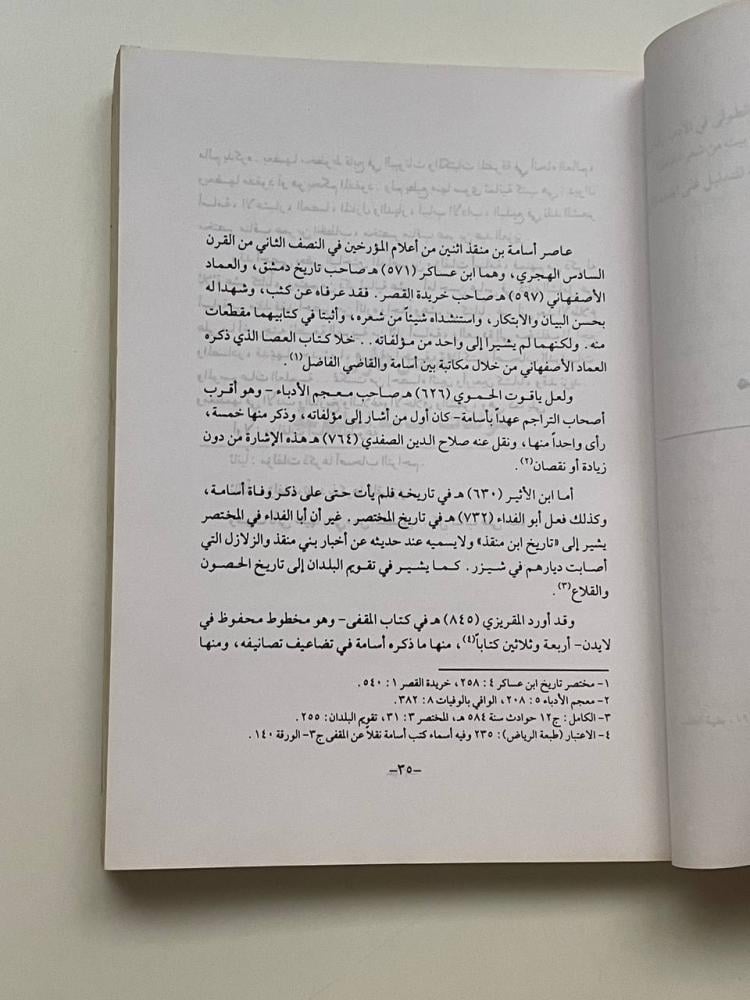 عاصر أسامة بن منقذ اثنين من أعلام المؤرخين في النصف الثاني من القرن
السادس الهجري، وهما ابن عساكر (٥٧١) هـ صاحب تاريخ دمشق، والعماد
الأصفهاني (٥٩٧) هـ صاحب خريدة القصر. فقد عرفاه عن كثب، وشهدا له
بحسن البيان والابتكار، واستنشداه شيئاً من شعره، وأثبتا في كتابيهما مقطّعات
منه. ولكنهما لم يشيرا إلى واحد من مؤلفاته.. خلا كتاب العصا الذي ذكره
العماد الأصفهاني من خلال مكاتبة بين أسامة والقاضي الفاضل(١).
ولعل ياقوت الحموي (٦٢٦) هـ صاحب معجم الأدباء - وهو أقرب
أصحاب التراجم عهداً بأسامة- كان أول من أشار إلى مؤلفاته، وذكر منها خمسة،
رأى واحداً منها، ونقل عنه صلاح الدين الصفدي (٧٦٤) هـ هذه الإشارة من دون
زيادة أو نقصان(٢).
أما ابن الأثير (٦٣٠) هـ في تاريخه فلم يأت حتى على ذكر وفاة أسامة،
وكذلك فعل أبو الفداء (٧٣٢) هـ في تاريخ المختصر. غير أن أبا الفداء في المختصر
يشير إلى «تاريخ ابن منقذ» ولايسميه عند حديثه عن أخبار بني منقذ والزلازل التي
أصابت ديارهم في شيزر. كما يشير في تقويم البلدان إلى تاريخ الحصون
والقلاع(٣).
وقد أورد المقريزي (٨٤٥) هـ في كتاب المقفى- وهو مخطوط محفوظ في
لايدن- أربعة وثلاثين كتاباً(٤)، منها ما ذكره أسامة في تضاعيف تصانيفه، ومنها
١- مختصر تاريخ ابن عساكر ٤: ٢٥٨، خريدة القصر ١: ٥٤٠.
٢- معجم الأدباء ٥: ٢٠٨، الوافي بالوفيات ٨: ٣٨٢.
٣- الكامل: ج١٢ حوادث سنة ٥٨٤ هـ، المختصر ٣: ٣١، تقويم البلدان: ٢٥٥.
٤- الاعتبار (طبعة الرياض): ٢٣٥ وفيه أسماء كتب أسامة نقلاً عن المقفى ج٣- الورقة ١٤٠.
-٣٥-